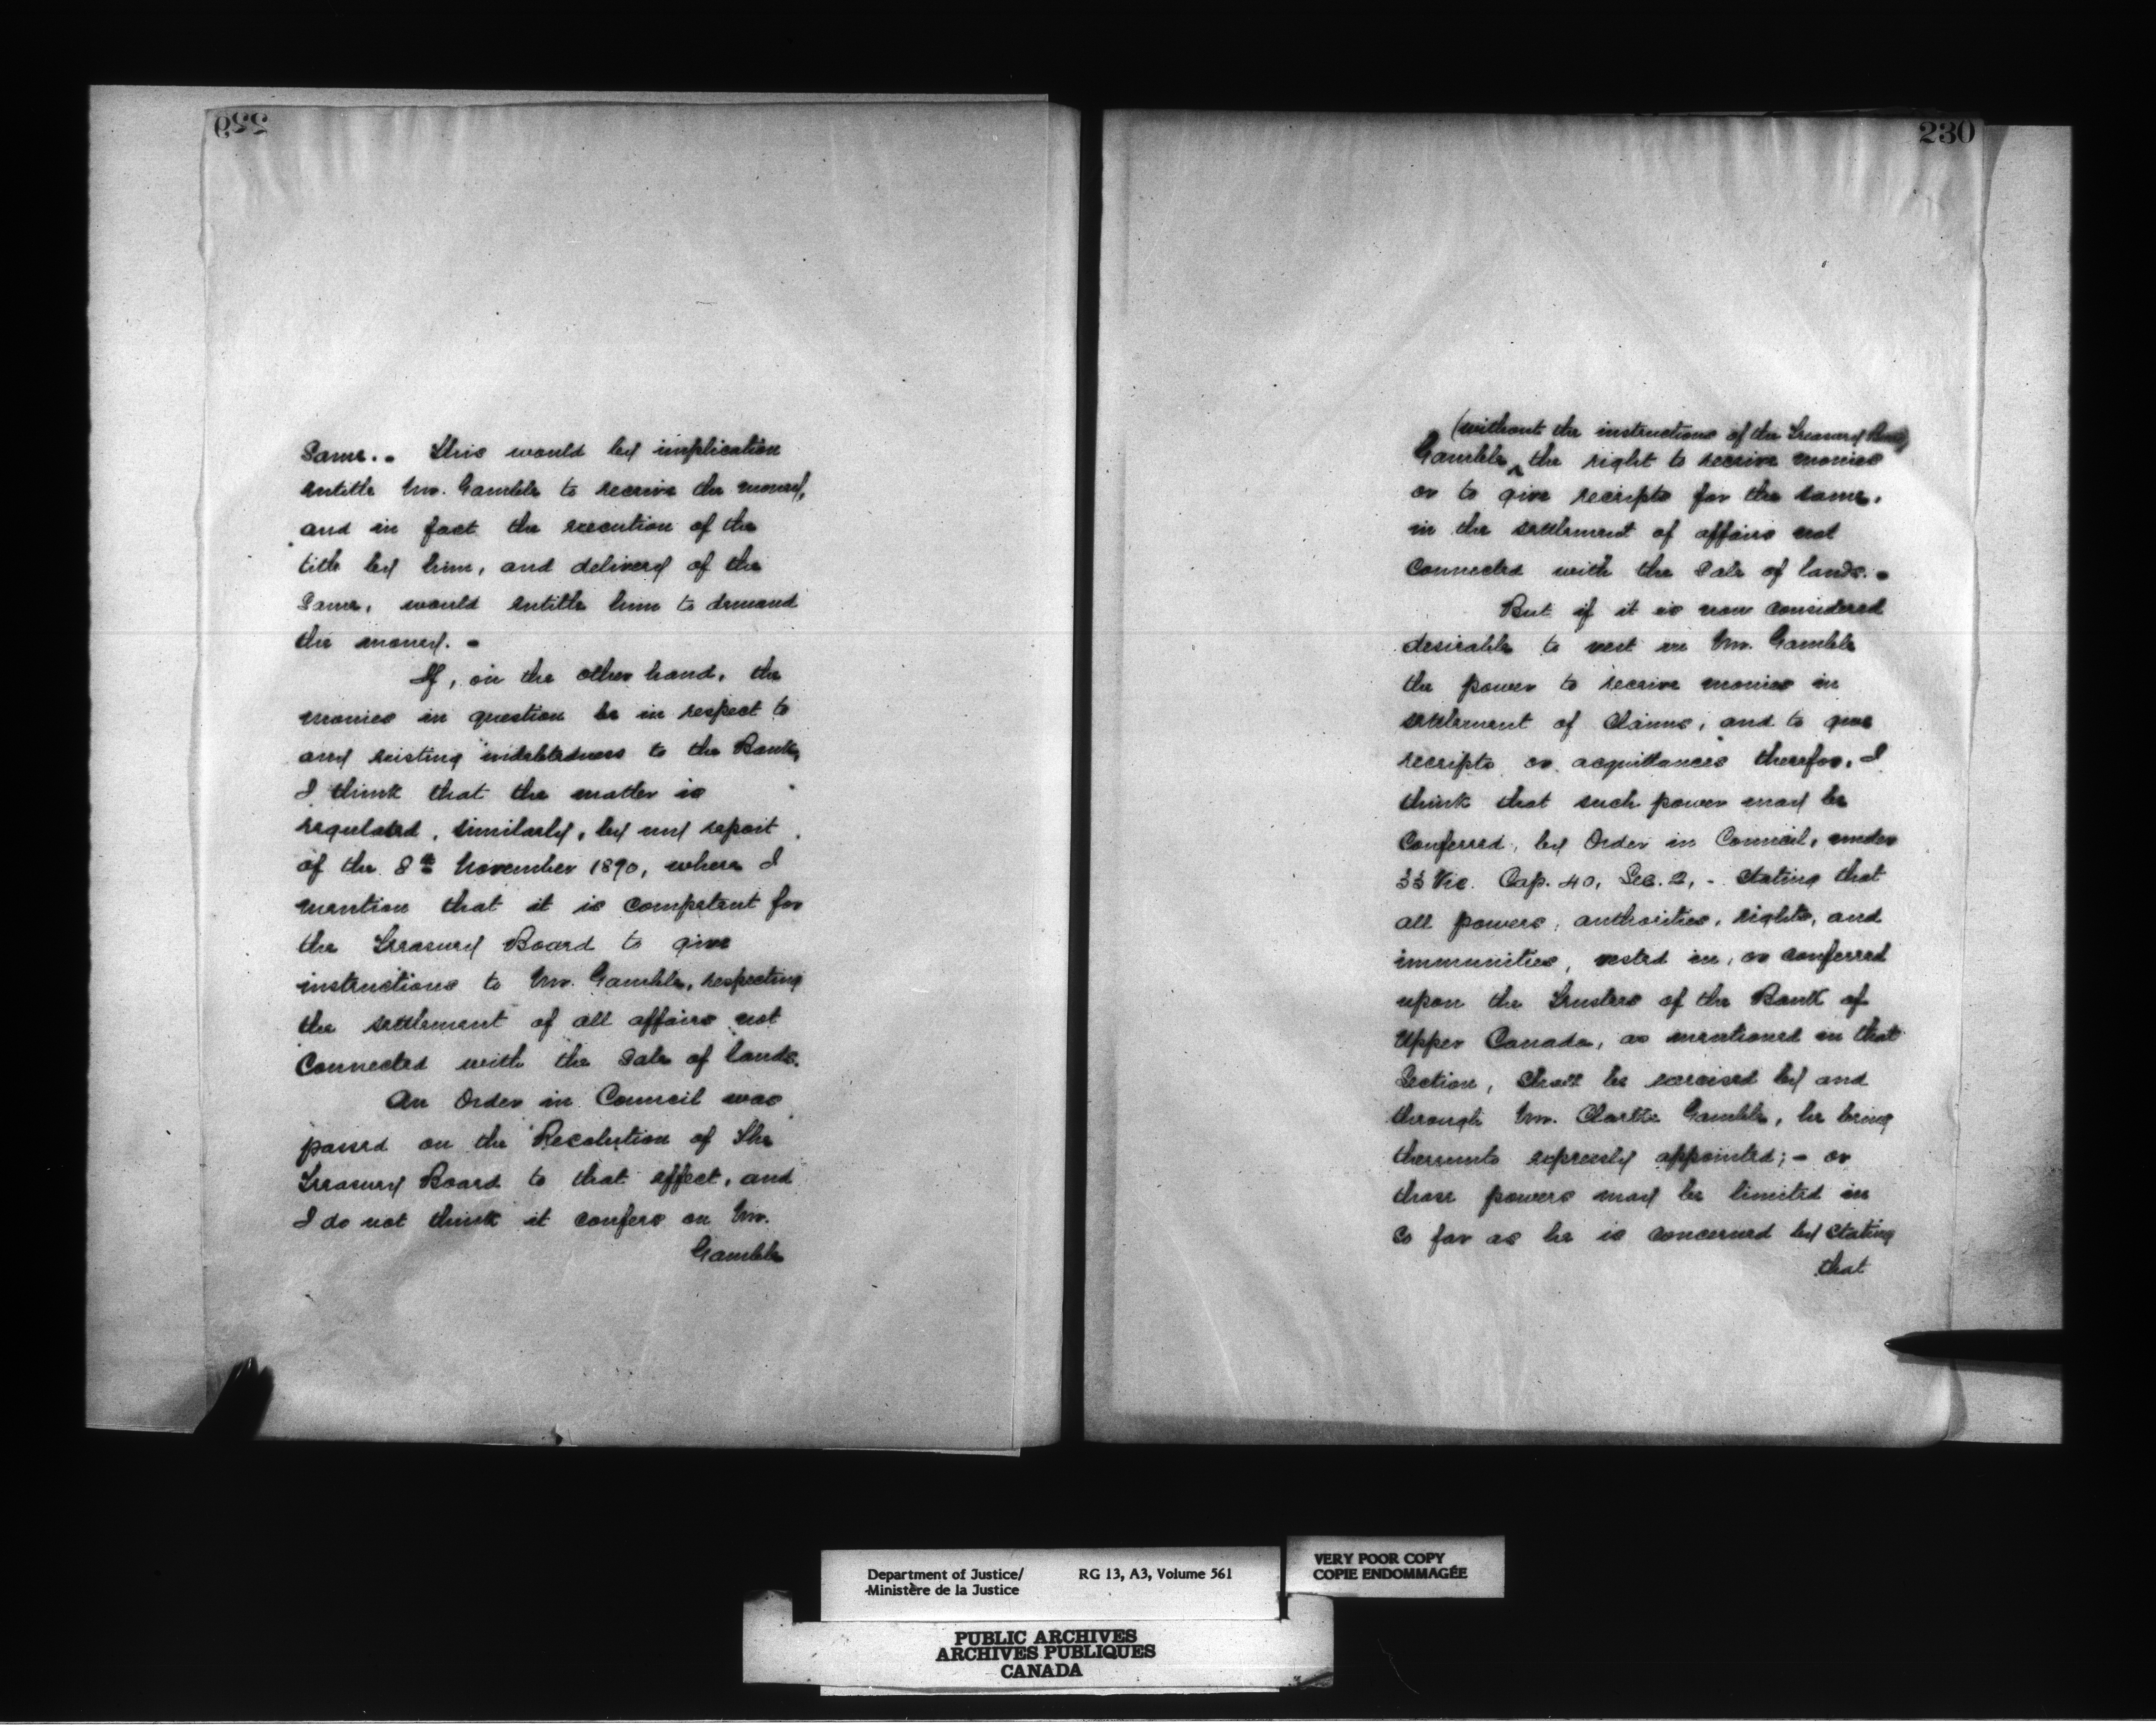 229
Same. - This would by implication
entitle Mr. Gamble to receive the money,
and in fact the execution of the
title by him, and delivery of the
Same, would entitle him to demand
the money. -
If, on the other hand, the
monies in question be in respect to
any existing indebtedness to the Bank,
I think that the matter is
regulated, similarly, by my report
of the 8th November 1890, where I
mention that it is competent for
the Treasury Board to give
instructions to Mr. Gamble, respecting
the settlement of all affairs not
Connected with the Sale of lands.
An Order in Council was
passed on the Resolution of The
Treasury Board to that effect, and
I do not think it confers on Mr.
Gamble
230
(without the instructions of the Treasury Board)
Gamble ^ the right to receive monies
or to give receipts for the same,
in the settlement of affairs not
Connected with the Sale of lands. -
But if it is now considered
desirable to vest in Mr. Gamble
the power to receive monies in
settlement of Claims, and to give
receipts or acquittances therefor, I
think that such power may be
Conferred, by Order in Council, under
33 Vic. Cap. 40, Sec. 2, - Stating that
all powers, authorities, rights, and
immunities, vested in, or conferred
upon the Trustees of the Bank of
Upper Canada, as mentioned in that
Section, Shall be exercised by and
through Mr. Clarke Gamble, he being
thereunto expressly appointed; - or
those powers may be limited in
So far as he is concerned by Stating
that
Department of Justice/
Ministère de la Justice
RG 13, A3, Volume 561
VERY POOR COPY
COPIE ENDOMMAGÉE
PUBLIC ARCHIVES
ARCHIVES PUBLIQUES
CANADA